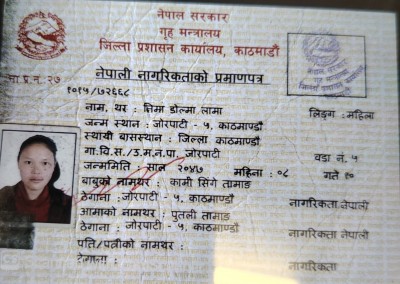 नेपाल सरकार
गृह मन्त्रालय
जिल्ला प्रशासन कार्यालय, काठमाडौं
ना.प्र.न. २७
नेपाली नागरिकताको प्रमाणपत्र
१०१५/७२६६८
नाम, थर : निमा डोल्मा लामा
लिङ्ग : महिला
जन्म स्थान : जोरपाटी - ५, काठमाण्डौं
स्थायी बासस्थान : जिल्ला काठमाण्डौं
गा.वि.स./उ.म.न.पा. जोरपाटी
वडा नं. ५
जन्ममिति : साल २०४७ महिना : ०८ गते १०
बाबुको नामथर : कामी सिंगे तामाङ
ठेगाना : जोरपाटी - ५, काठमाण्डौं
नागरिकता नेपाली
आमाको नामथर : पुतली तामाङ
ठेगाना : जोरपाटी - ५, काठमाण्डौं
नागरिकता नेपाली
पति/पत्नीको नामथर :
ठेगाना :
नागरिकता